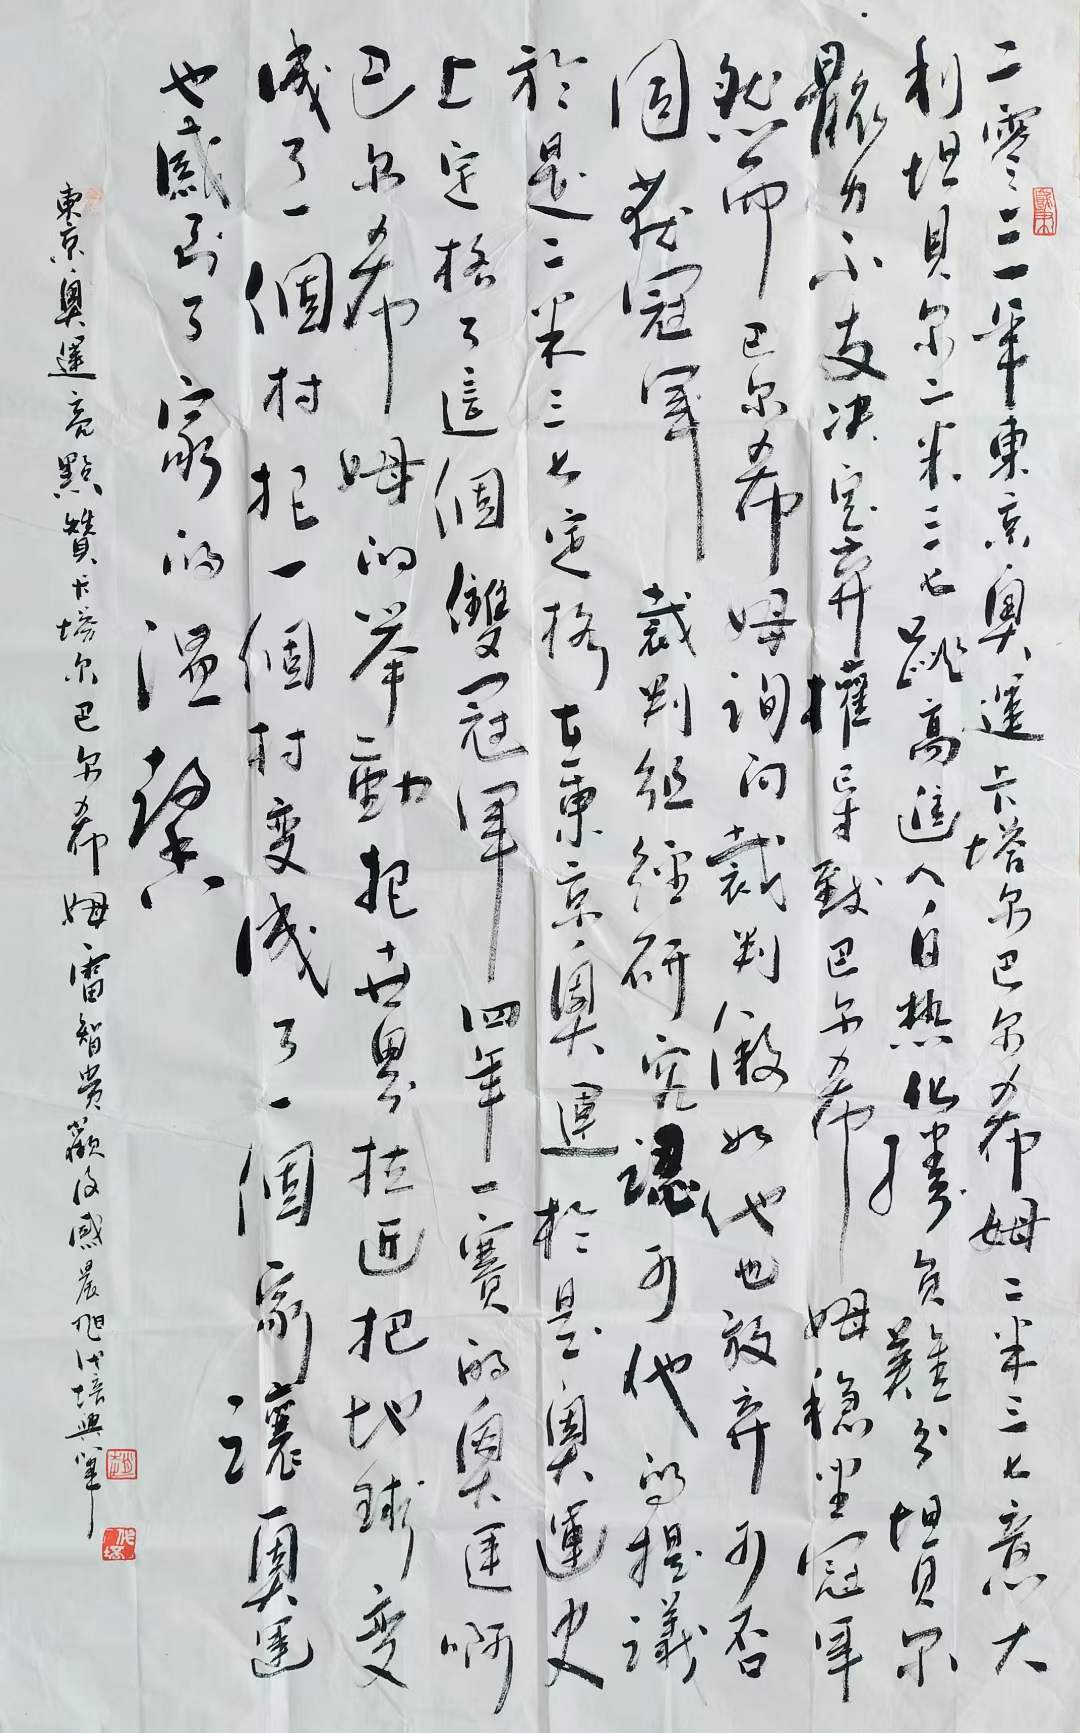 二零二一年東京奥運卡塔尔巴尔希姆二米三七意大
利坦貝尔二米三七跳高進入白热化勝負難分坦貝尔
體力不支决定弃權這時致巴尔希姆稳坐冠軍
然而巴尔希姆詢问裁判假如他也放弃可否
同获冠軍裁判组經研究認可他的提議
於是二米三七定格在東京奥運於是奥運史
上定格了這個雙冠軍四年一賽的奥運啊
巴尔希姆的举動把世界拉近把地球变
成了一個村把一個村变成了一個家讓奥運
也感到了家的温馨
東京奥運亮點贊卡塔尔巴尔希姆雷智贵觀後感晨旭代培典筆